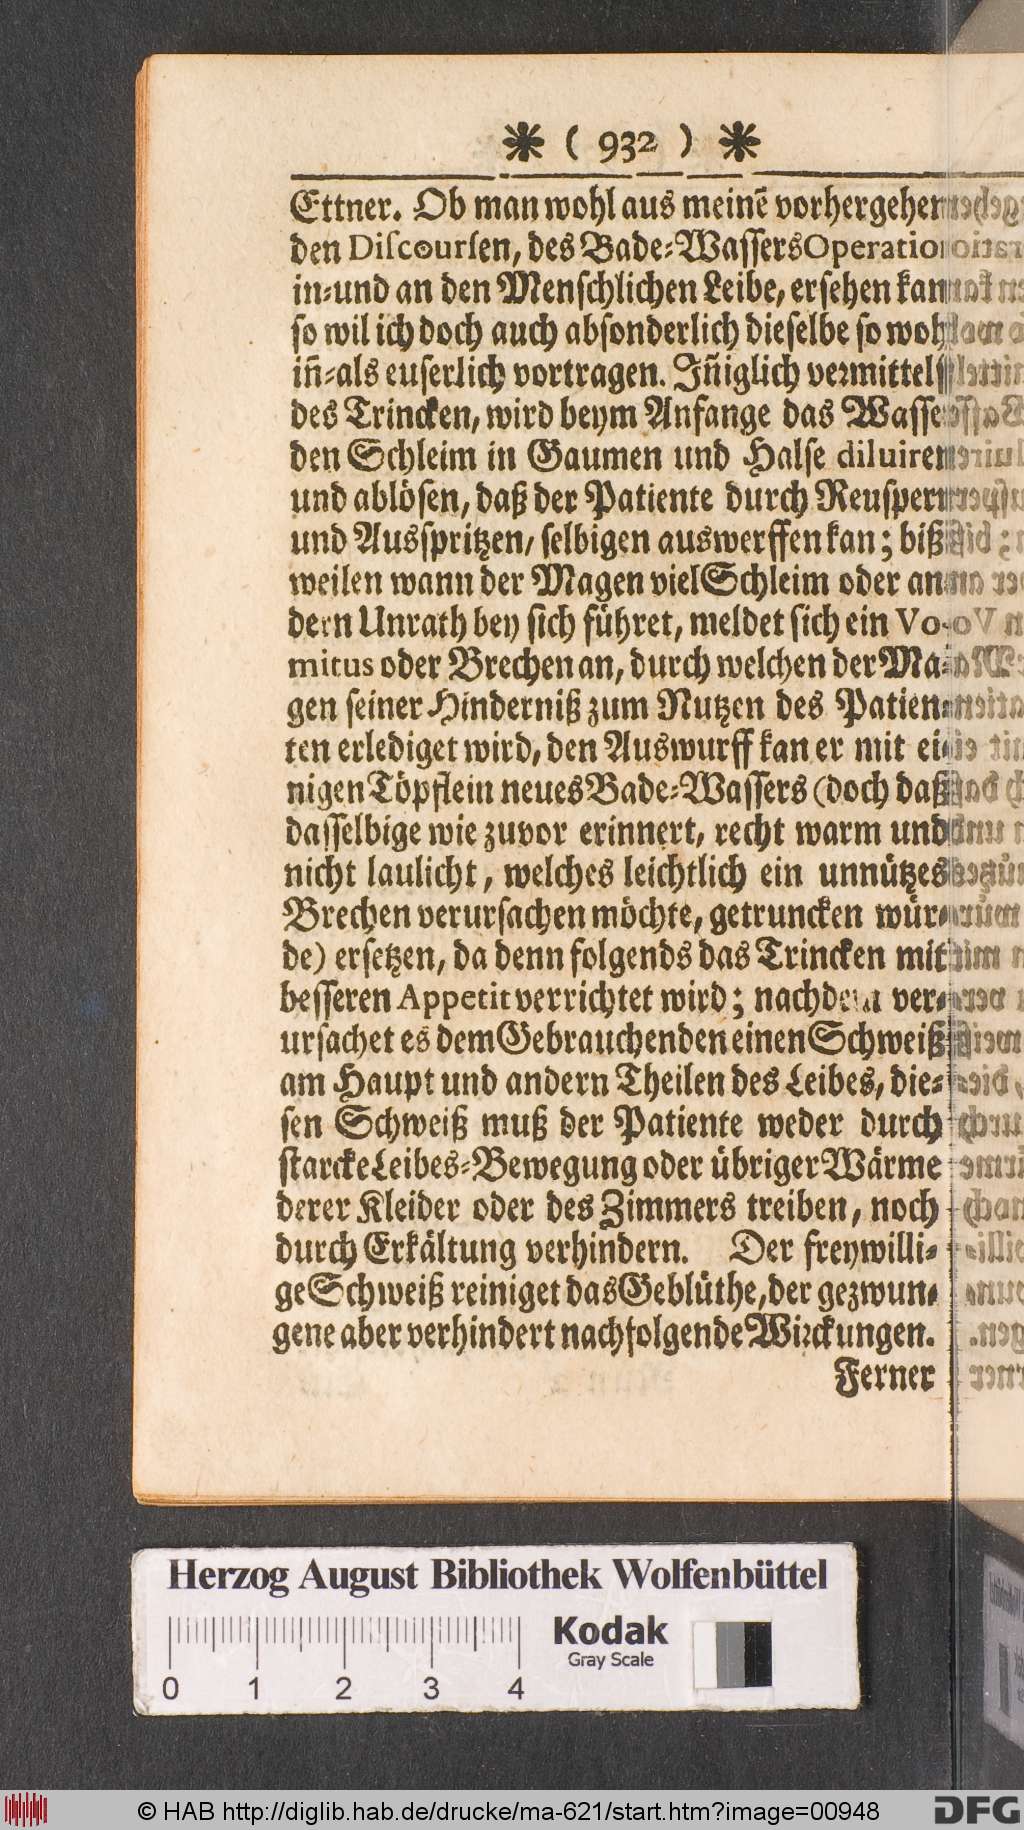 ✻ ( 932 ) ✻
Ettner. Ob man wohl aus meinē vorhergehen
den Discoursen, des Bade-Wassers Operatio
in-und an den Menschlichen Leibe, ersehen kan
so wil ich doch auch absonderlich dieselbe so wohl
iñ-als euserlich vortragen. Jñiglich vermittelst
des Trincken, wird beym Anfange das Wasser
den Schleim in Gaumen und Halse diluiren
und ablösen, daß der Patiente durch Reuspern
und Ausspritzen/ selbigen auswerffen kan; biß
weilen wann der Magen viel Schleim oder an
dern Unrath bey sich führet, meldet sich ein Vo-
mitus oder Brechen an, durch welchen der Ma-
gen seiner Hinderniß zum Nutzen des Patien-
ten erlediget wird, den Auswurff kan er mit ei-
nigen Töpflein neues Bade-Wassers (doch daß
dasselbige wie zuvor erinnert, recht warm und
nicht laulicht, welches leichtlich ein unnützes
Brechen verursachen möchte, getruncken wür-
de) ersetzen, da denn folgends das Trincken mit
besseren Appetit verrichtet wird; nachdem ver-
ursachet es dem Gebrauchenden einen Schweiß
am Haupt und andern Theilen des Leibes, die-
sen Schweiß muß der Patiente weder durch
starcke Leibes-Bewegung oder übriger Wärme
derer Kleider oder des Zimmers treiben, noch
durch Erkältung verhindern. Der freywilli-
ge Schweiß reiniget das Geblüthe, der gezwun-
gene aber verhindert nachfolgende Wirckungen.
Ferner
Herzog August Bibliothek Wolfenbüttel
Kodak
Gray Scale
0 1 2 3 4
© HAB http://diglib.hab.de/drucke/ma-621/start.htm?image=00948
DFG